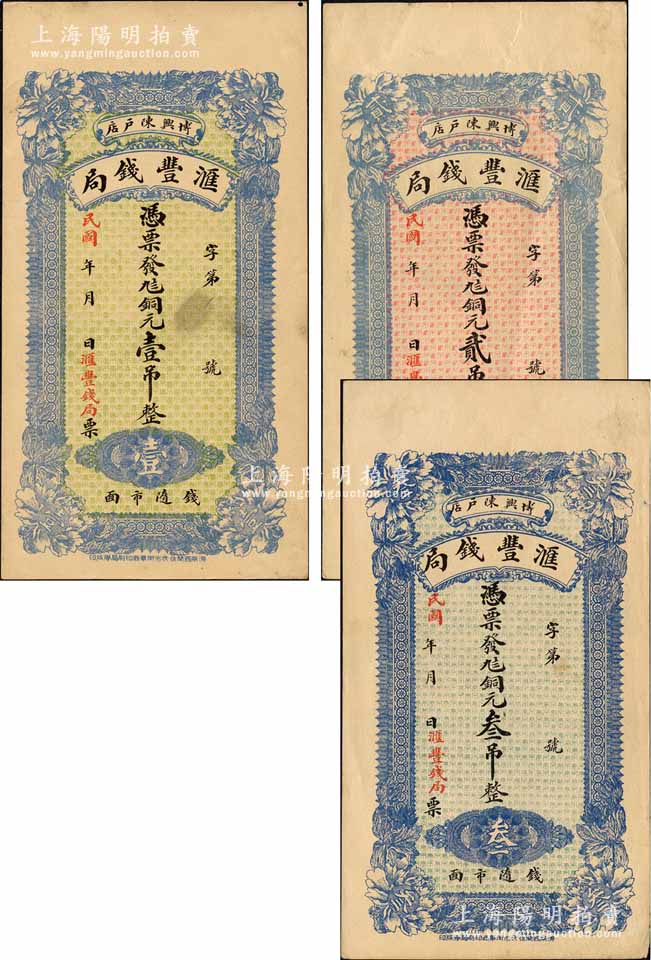 上海陽明拍賣
www.yangmingauction.com
博興陳戶店
滙豐錢局
字第 號
憑票發九八銅元壹吊整
民國 年 月 日滙豐錢局票
壹
錢隨市面
博興陳戶店
滙豐錢局
字第 號
憑票發九八銅元貳吊
民國 年 月 日滙
博興陳戶店
滙豐錢局
字第 號
憑票發九八銅元叁吊整
民國 年 月 日滙豐錢局票
叁
錢隨市面
上海陽明拍賣
www.yangmingauction.com
上海陽明拍賣
www.yangmingauction.com